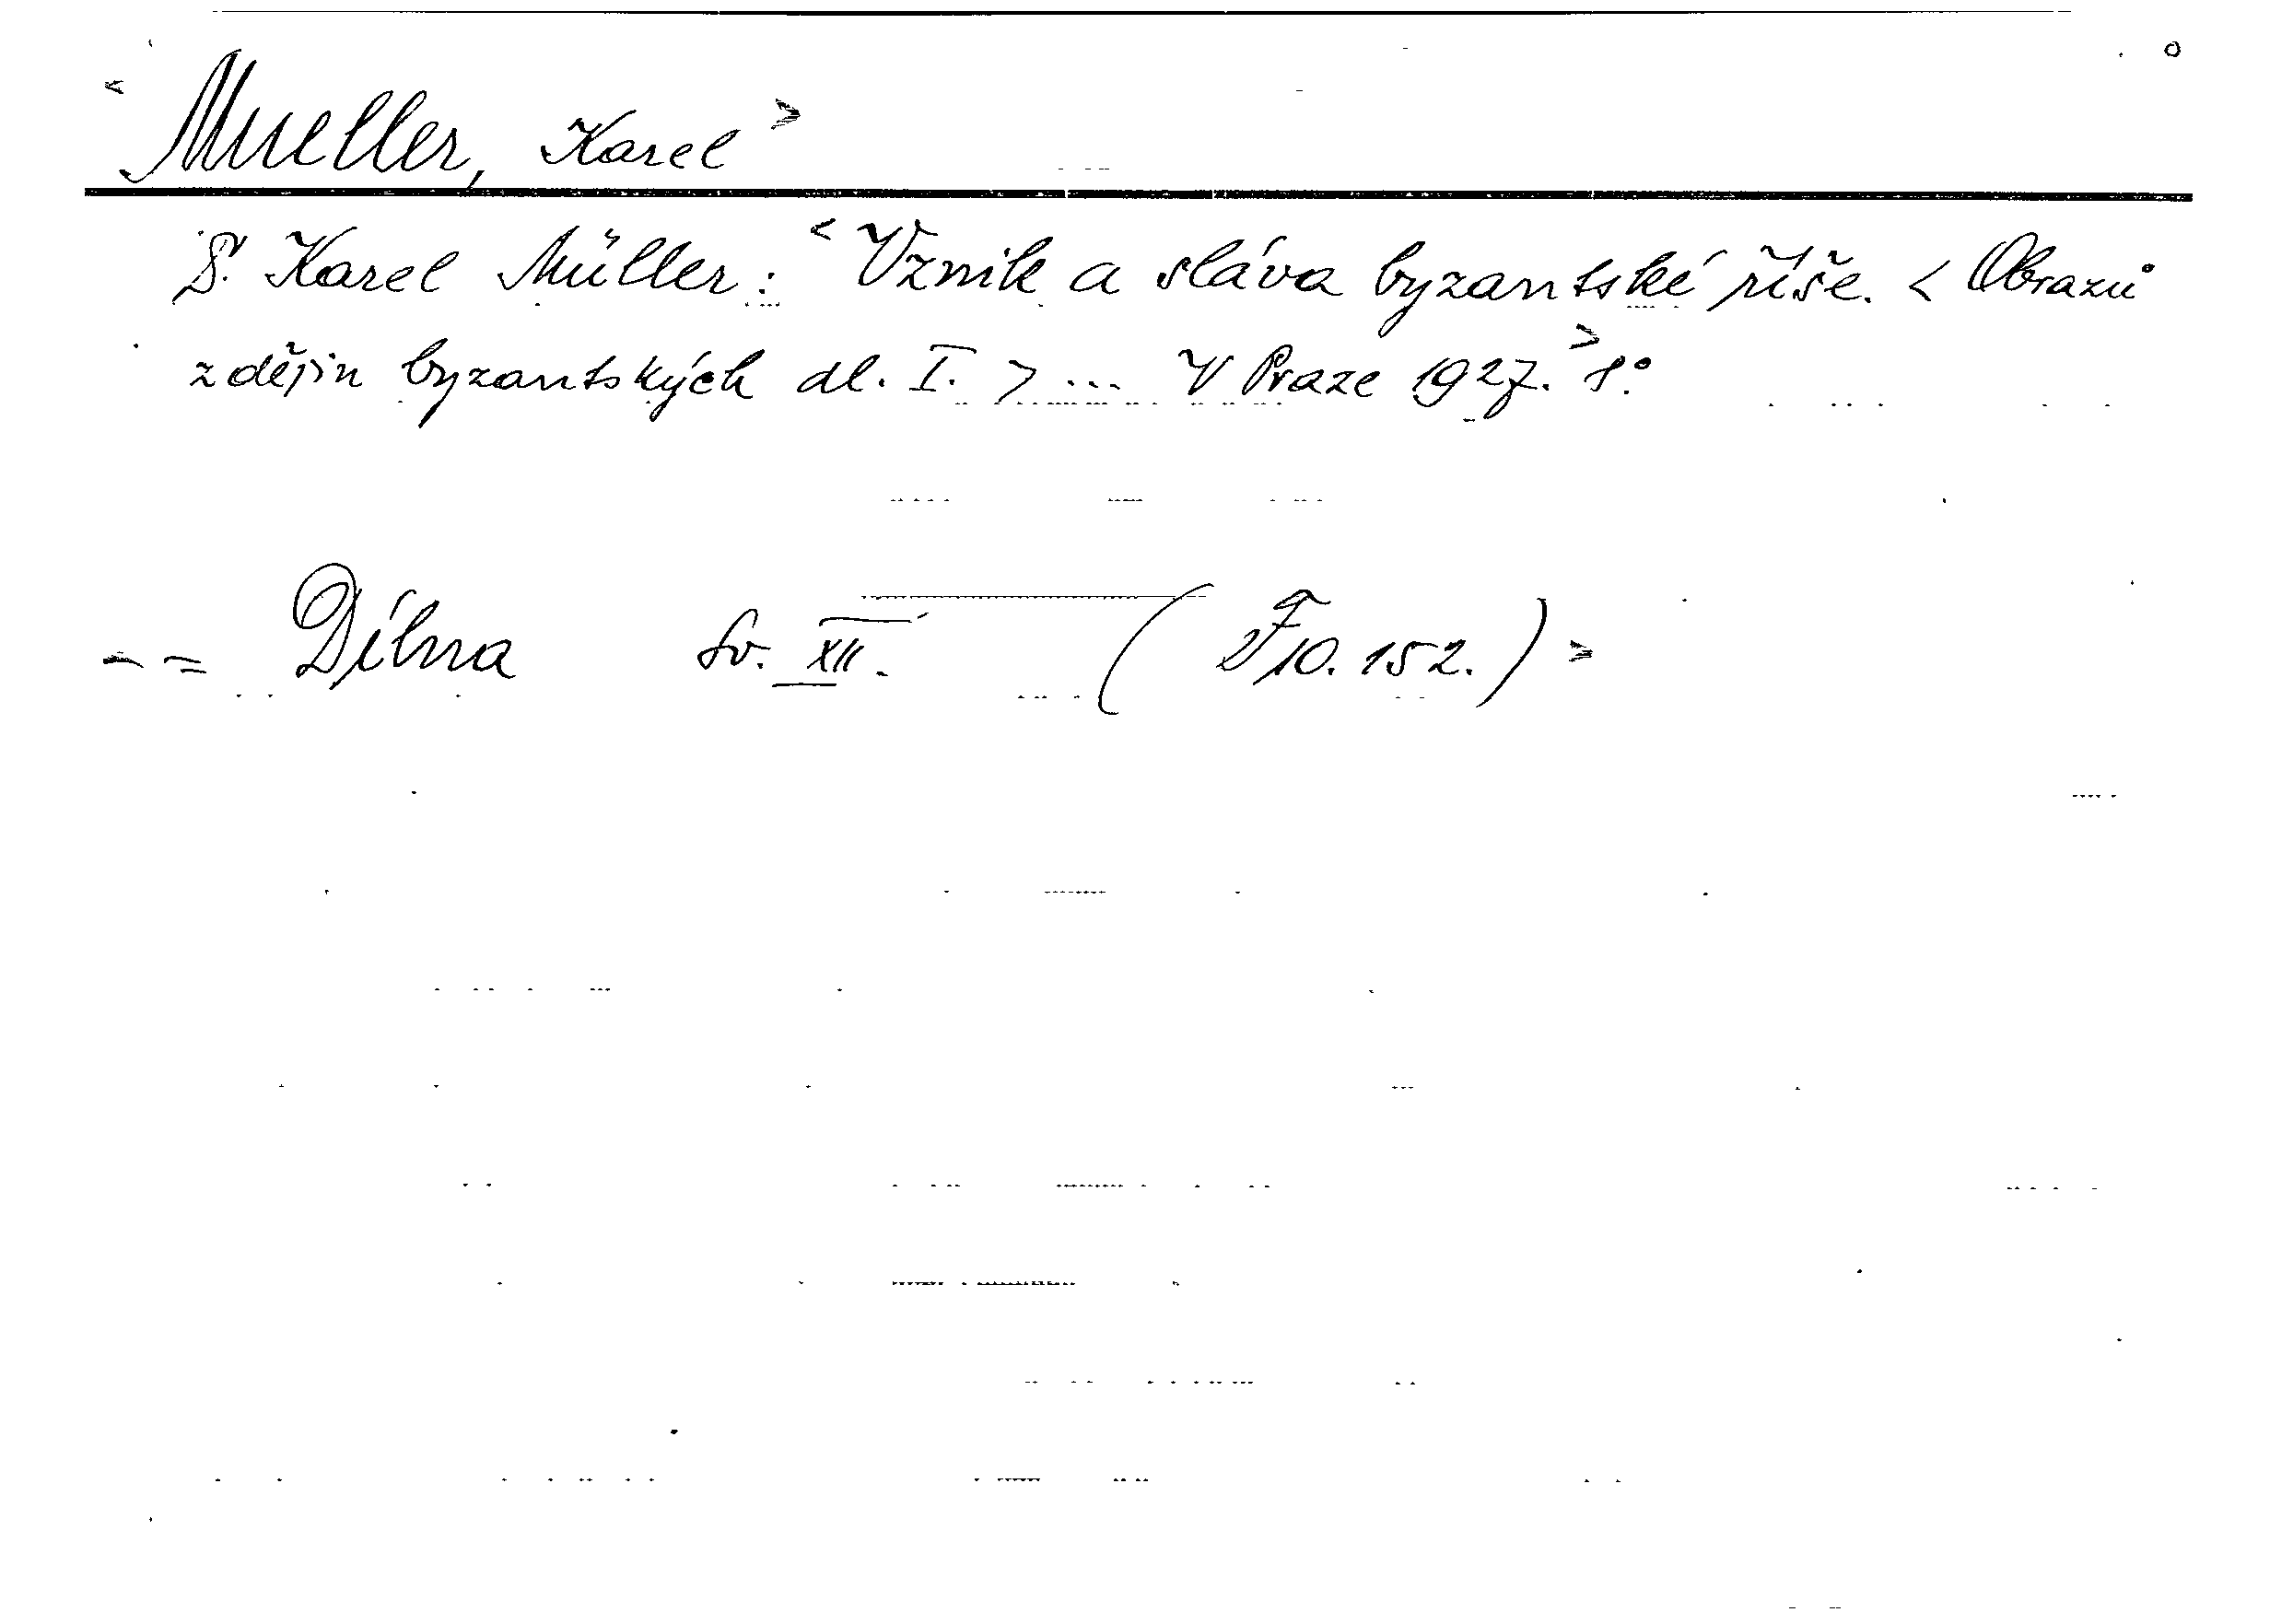 < Mueller, Karel >
Karel Müller: < Vznik a sláva byzantské říše. < Obrazů
z dějin byzantských dl. I. > ... V Praze 1927. > 8°
-- = Dílna Sv. XII. ( F 10. 152. ) >